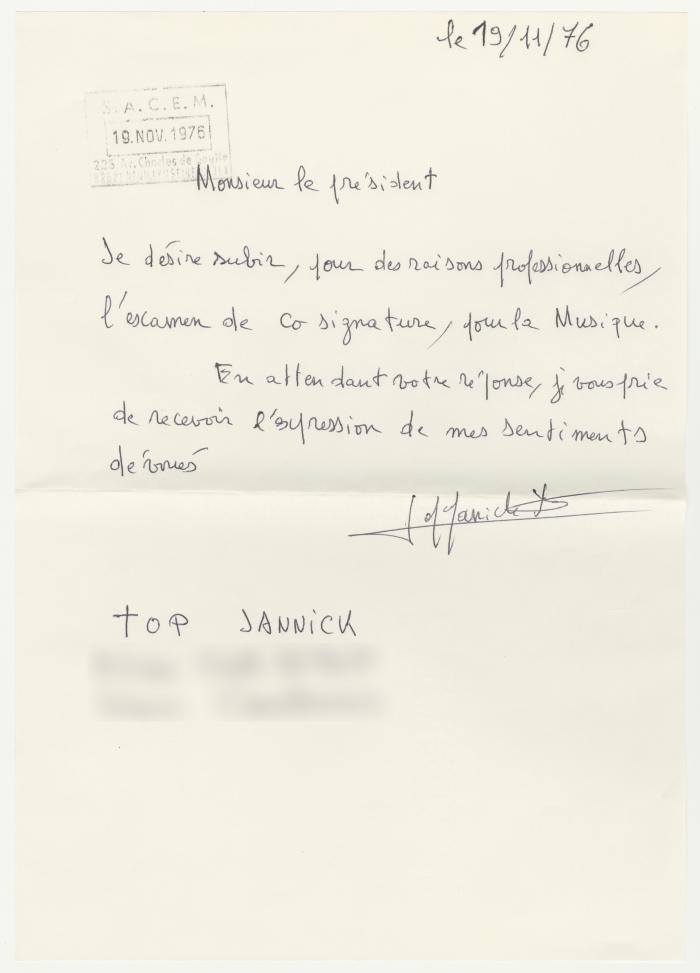 le 19/11/76
S.A.C.E.M.
19.NOV.1976
225 Av. Charles de Gaulle
Monsieur le président
Je désire subir, pour des raisons professionnelles,
l'escamen de co signature, pour la Musique.
En attendant votre réponse, je vous prie
de recevoir l'expression de mes sentiments
dévoués
TOP JANNICK